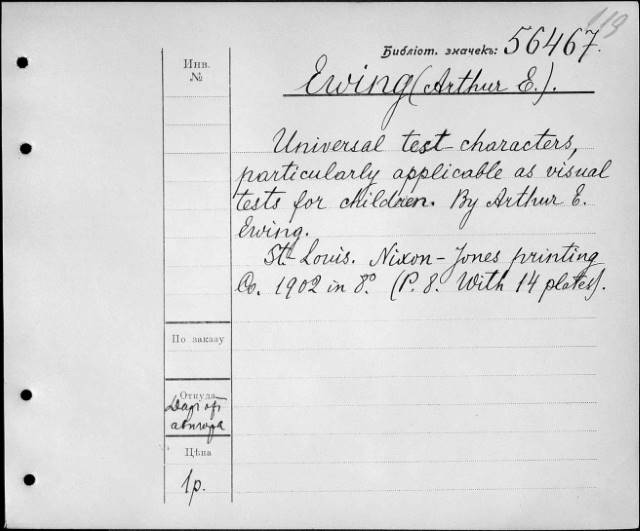 119
Библіот. значекъ: 56467.
Инв.
№
Ewing (Arthur E.).
Universal test characters,
particularly applicable as visual
tests for children. By Arthur E.
Ewing.
St. Louis. Nixon-Jones printing
Co. 1902 in 8.º (P. 8. With 14 plates).
По заказу
Откуда
Даръ отъ
автора
Цѣна
1р.